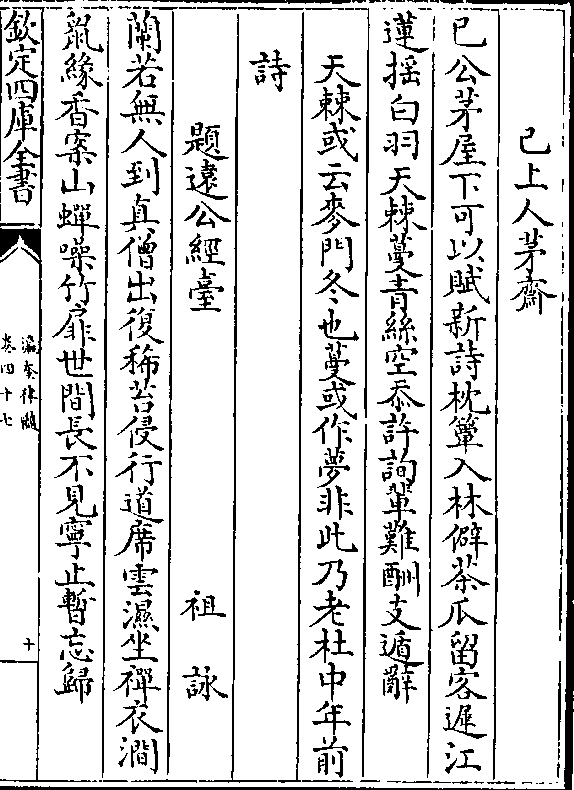 已上人茅齋
已公茅屋下可以賦新詩枕簟入林僻茶瓜留客遲江
蓮揺白羽天棘蔓青絲空忝許詢輩難酬支遁辭
天棘或云麥門冬也蔓或作夢非此乃老杜中年前
詩
題遠公經臺 祖詠
蘭若無人到真僧出復稀苔侵行道席雲濕坐禪衣澗
䑕緣香案山蟬噪竹扉世間長不見寧止暫忘歸
欽定四庫全書
瀛奎律髓
卷四十七
十